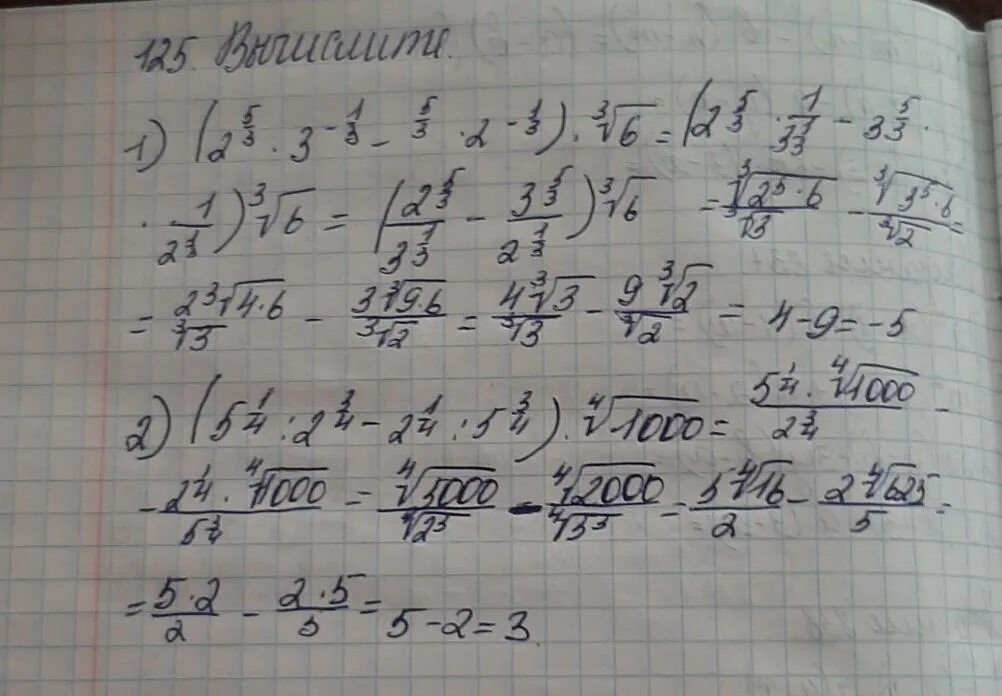 125. Вычислите.
1) (2^{5/3} · 3^{-1/3} - ^{5/3} · 2^{-1/3}) · ∛6 = (2^{5/3} · 1/3^{1/3} - 3^{5/3} ·
· 1/2^{1/3}) ∛6 = (2^{5/3}/3^{1/3} - 3^{5/3}/2^{1/3}) ∛6 = ∛(2^5 · 6)/∛3 - ∛(3^5 · 6)/∛2 =
= 2∛(4·6)/∛3 - 3∛(9·6)/∛2 = 4∛3/∛3 - 9∛2/∛2 = 4-9=-5
2) (5^{1/4} : 2^{3/4} - 2^{1/4} : 5^{3/4}) · ∜1000 = 5^{1/4} · ∜1000/2^{3/4} -
- 2^{1/4} · ∜1000/5^{3/4} = ∜5000/∜2^3 - ∜2000/∜5^3 = 5∜16/2 - 2∜625/5 =
= 5·2/2 - 2·5/5 = 5-2=3